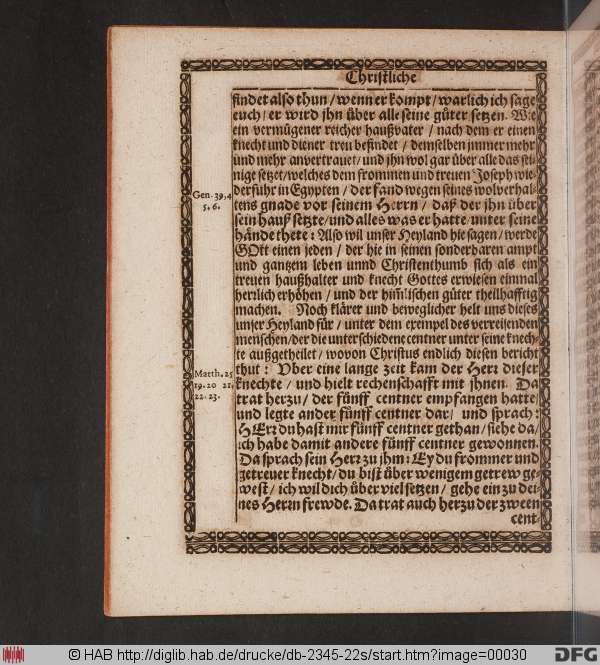 Christliche
findet also thun / wenn er kompt / warlich ich sage
euch / er wird jhn über alle seine güter setzen. Wie
ein vermügener reicher haußvater / nach dem er einen
knecht und diener treu befindet / demselben jmmer mehr
und mehr anvertrauet / und jhn wol gar über alle das sei-
nige setzet / welches dem frommen und treuen Joseph wie-
derfuhr in Egypten / der fand wegen seines wolverhal-
Gen. 39, 4
tens gnade vor seinem Herrn / daß der jhn über
5. 6.
sein hauß setzte / und alles was er hatte unter seine
hände thete: Also wil unser Heyland hie sagen / werde
GOtt einen jeden / der hie in seinen sonderbaren ampt
und gantzem leben unnd Christenthumb sich als ein
treuen haußhalter und knecht Gottes erwiesen einmal
herrlich erhöhen / und der him̃lischen güter theilhafftig
machen. Noch klärer und beweglicher helt uns dieses
unser Heyland für / unter dem exempel des verreisenden
menschen / der die unterschiedene centner unter seine knech-
te außgetheilet / wovon Christus endlich diesen bericht
Matth. 25
thut: Vber eine lange zeit kam der Herr dieser
19. 20 21.
knechte / und hielt rechenschafft mit jhnen. Da
22. 23.
trat herzu / der fünff centner empfangen hatte
und legte ander fünff centner dar / und sprach:
HErr du hast mir fünff centner gethan / siehe da /
ich habe damit andere fünff centner gewonnen.
Da sprach sein Herr zu jhm: Ey du frommer und
getreuer knecht / du bist über wenigem getrew ge-
west / ich wil dich über viel setzen / gehe ein zu dei-
nes Herrn frewde. Da trat auch herzu der zween
cent-
© HAB http://diglib.hab.de/drucke/db-2345-22s/start.htm?image=00030
DFG